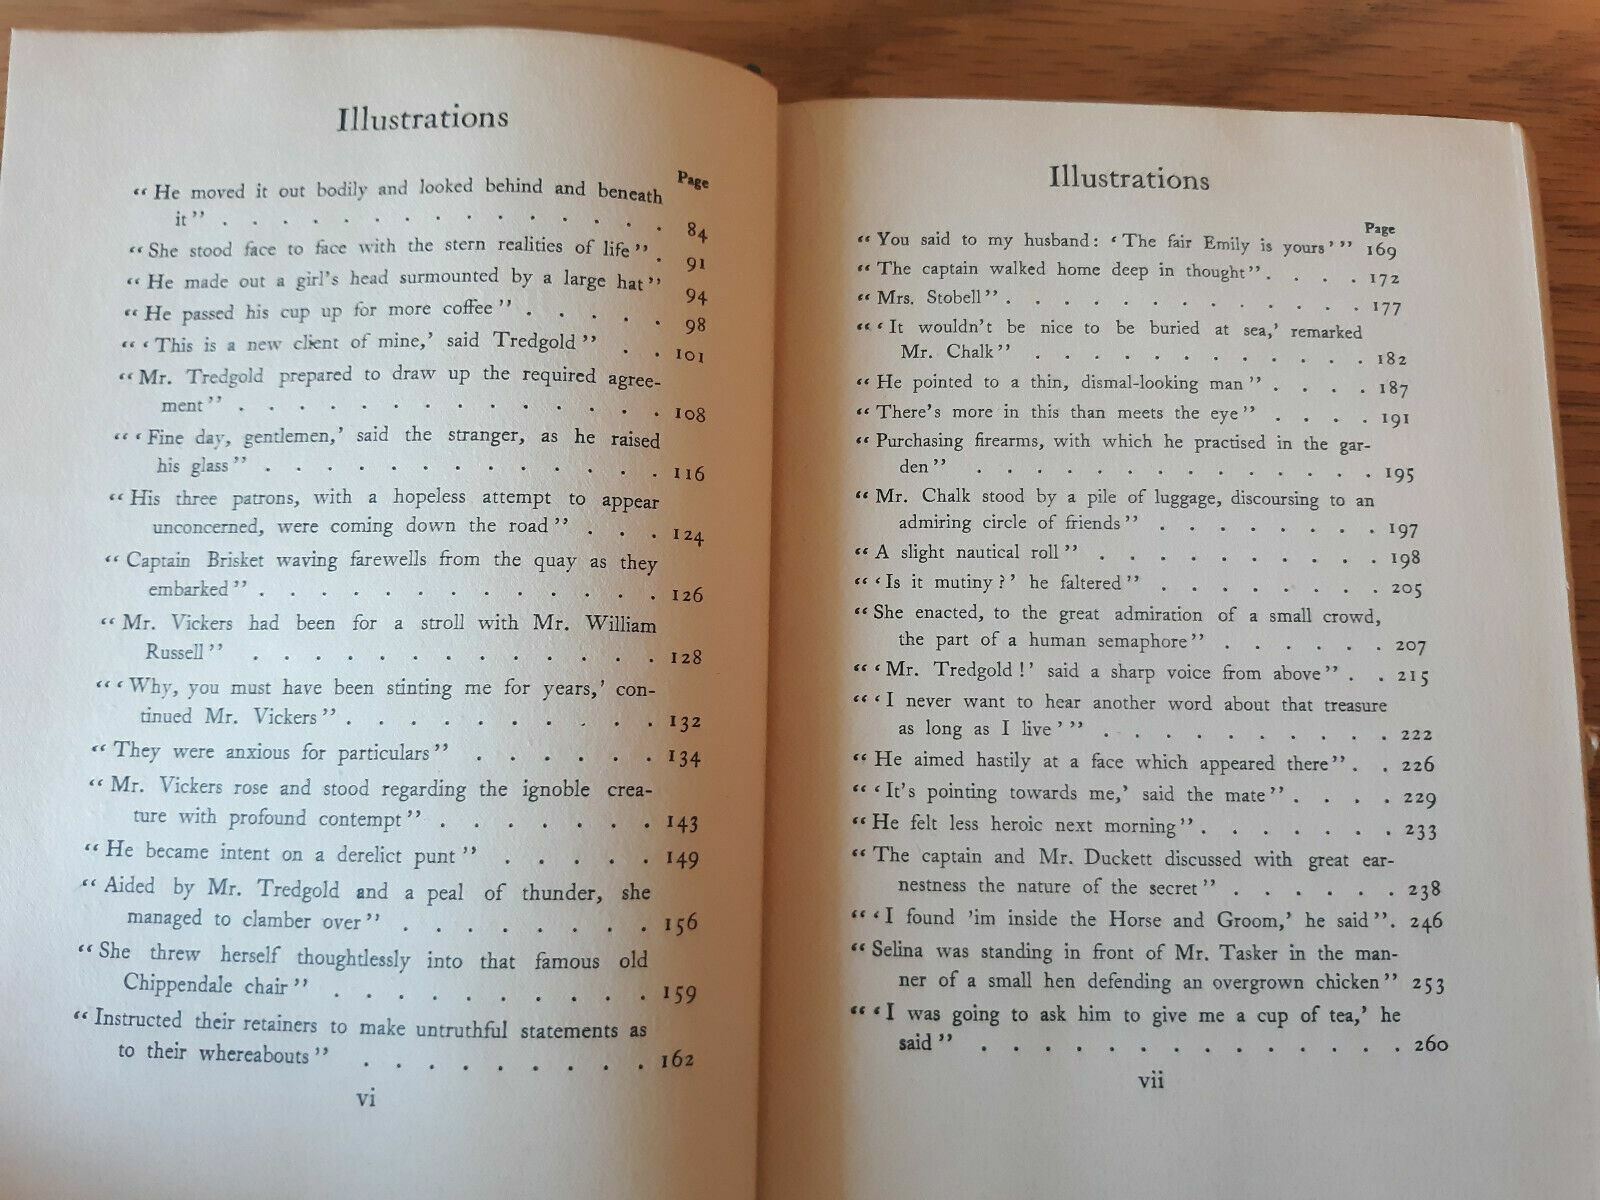 Illustrations
Page
“ He moved it out bodily and looked behind and beneath
it ” . . . . . . . . . . . . . . 84
“ She stood face to face with the stern realities of life ” . 91
“ He made out a girl's head surmounted by a large hat ” 94
“ He passed his cup up for more coffee ” . . . . . 98
“ ‘ This is a new client of mine,’ said Tredgold ” . . 101
“ Mr. Tredgold prepared to draw up the required agree-
ment ” . . . . . . . . . . . . . 108
“ ‘ Fine day, gentlemen,’ said the stranger, as he raised
his glass ” . . . . . . . . . . . . 116
“ His three patrons, with a hopeless attempt to appear
unconcerned, were coming down the road ” . . . 124
“ Captain Brisket waving farewells from the quay as they
embarked ” . . . . . . . . . . . . 126
“ Mr. Vickers had been for a stroll with Mr. William
Russell ” . . . . . . . . . . . . . 128
“ ‘ Why, you must have been stinting me for years,’ con-
tinued Mr. Vickers ” . . . . . . . . . . 132
“ They were anxious for particulars ” . . . . . . 134
“ Mr. Vickers rose and stood regarding the ignoble crea-
ture with profound contempt ” . . . . . . . 143
“ He became intent on a derelict punt ” . . . . . 149
“ Aided by Mr. Tredgold and a peal of thunder, she
managed to clamber over ” . . . . . . . . 156
“ She threw herself thoughtlessly into that famous old
Chippendale chair ” . . . . . . . . . . 159
“ Instructed their retainers to make untruthful statements as
to their whereabouts ” . . . . . . . . . 162
vi
Illustrations
Page
“ You said to my husband: ‘ The fair Emily is yours ’ ” 169
“ The captain walked home deep in thought ” . . . . 172
“ Mrs. Stobell ” . . . . . . . . . . . . 177
“ ‘ It wouldn't be nice to be buried at sea,’ remarked
Mr. Chalk ” . . . . . . . . . . . . 182
“ He pointed to a thin, dismal-looking man ” . . . . 187
“ There's more in this than meets the eye ” . . . . 191
“ Purchasing firearms, with which he practised in the gar-
den ” . . . . . . . . . . . . . . 195
“ Mr. Chalk stood by a pile of luggage, discoursing to an
admiring circle of friends ” . . . . . . . . 197
“ A slight nautical roll ” . . . . . . . . . 198
“ ‘ Is it mutiny ? ’ he faltered ” . . . . . . . . 205
“ She enacted, to the great admiration of a small crowd,
the part of a human semaphore ” . . . . . . 207
“ ‘ Mr. Tredgold ! ’ said a sharp voice from above ” . . 215
“ ‘ I never want to hear another word about that treasure
as long as I live ’ ” . . . . . . . . . . 222
“ He aimed hastily at a face which appeared there ” . . 226
“ ‘ It's pointing towards me,’ said the mate ” . . . . 229
“ He felt less heroic next morning ” . . . . . . 233
“ The captain and Mr. Duckett discussed with great ear-
nestness the nature of the secret ” . . . . . . 238
“ ‘ I found 'im inside the Horse and Groom,’ he said ” . 246
“ Selina was standing in front of Mr. Tasker in the man-
ner of a small hen defending an overgrown chicken ” 253
“ ‘ I was going to ask him to give me a cup of tea,’ he
said ” . . . . . . . . . . . . . . 260
vii